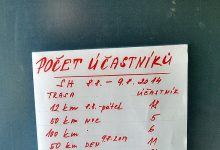 POČET ÚČASTNÍKŮ
SH 8.8. - 9.8. 2014
TRASA ÚČASTNÍK
12 km 8.8. pátek 12
50 km NOC 5
100 km 6
50 km DEN 9.8.2014 11